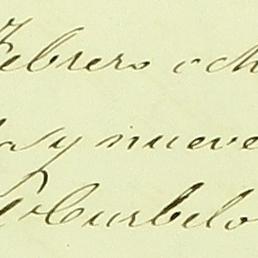 Febrero och
y nueve
Curbelo